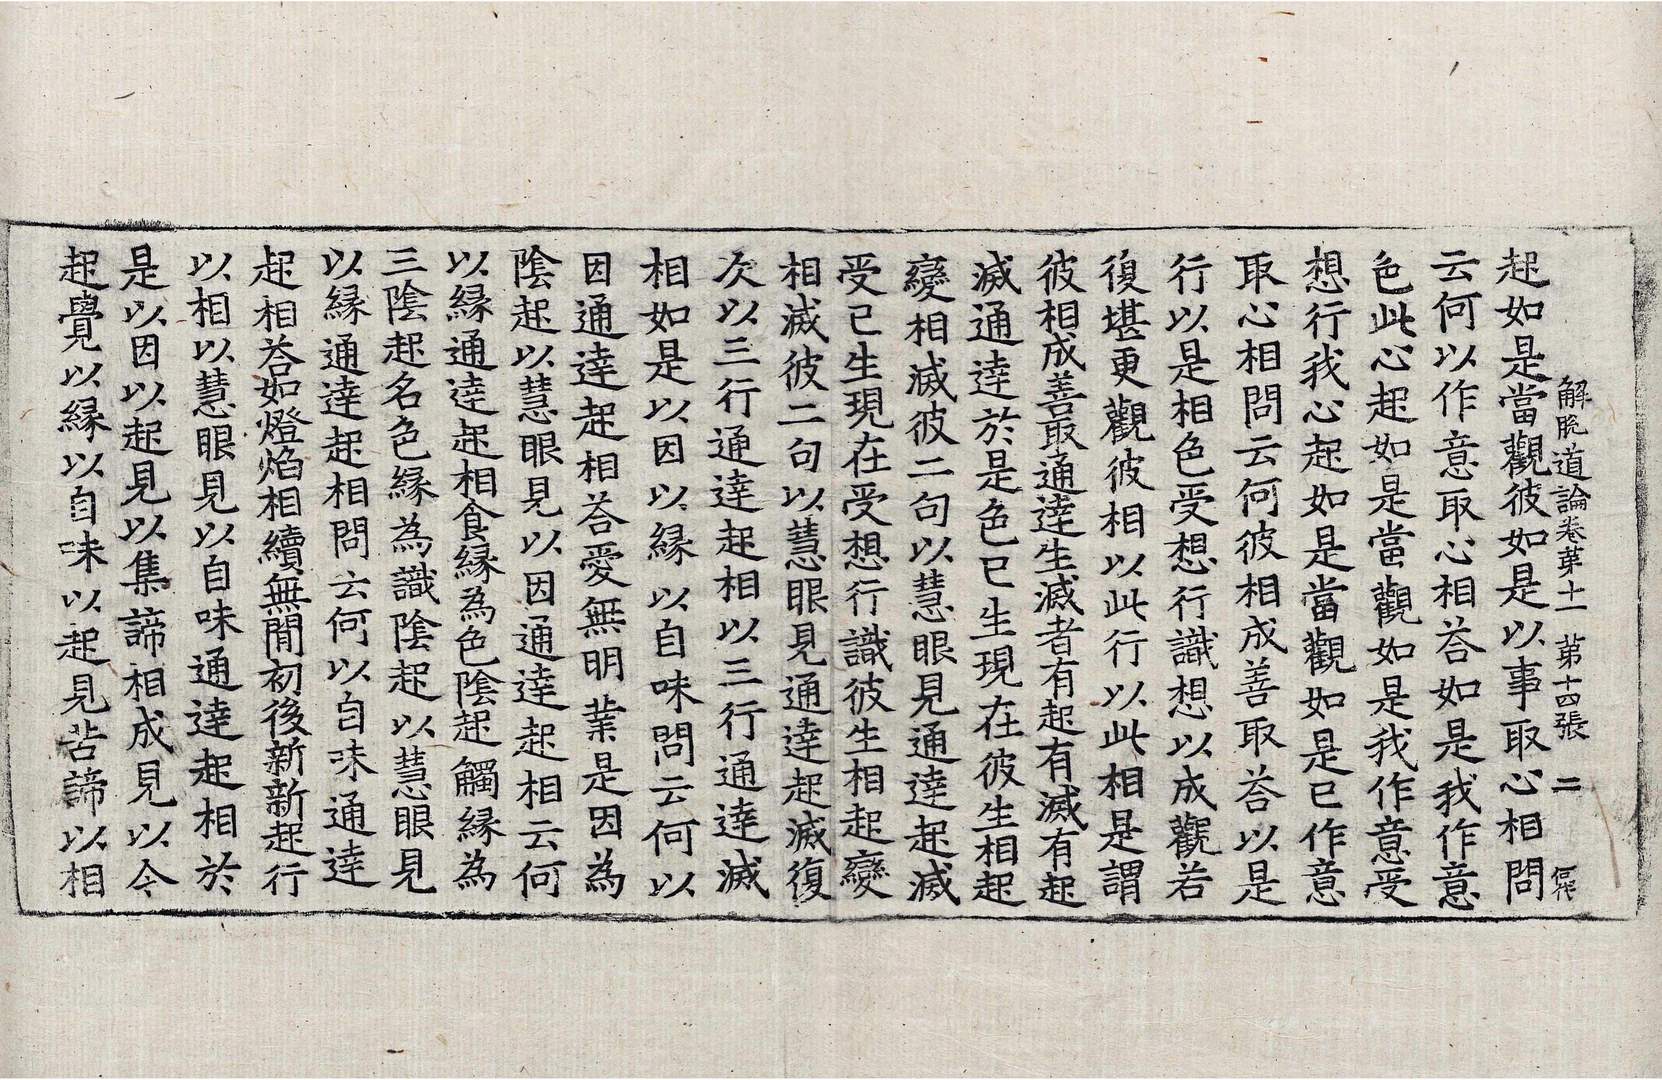 解脫道論卷第十一 第十四張 二
起如是當觀彼如是以事取心相問
云何以作意取心相荅如是我作意
色此心起如是當觀如是我作意受
想行我心起如是當觀如是已作意
取心相問云何彼相成善取荅以是
行以是相色受想行識想以成觀若
復堪更觀彼相以此行以此相是謂
彼相成善取通達生滅者有起有滅有起
滅通達於是色已生現在彼生相起
變相滅彼二句以慧眼見通達起滅
受已生現在受想行識彼生相起變
相滅彼二句以慧眼見通達起滅復
次以三行通達起相以三行通達滅
相如是以因以緣以自味問云何以
因通達起相荅愛無明業是因為
陰起以慧眼見以因通達起相云何
以緣通達起相食緣為色陰起觸緣為
三陰起名色緣為識陰起以慧眼見
以緣通達起相問云何以自味通達
起相荅如燈焰相續無間初後新新起行
以相以慧眼見以自味通達起相於
是以因以起見以集諦相成見以令
起覺以緣以自味以起見苦諦以相